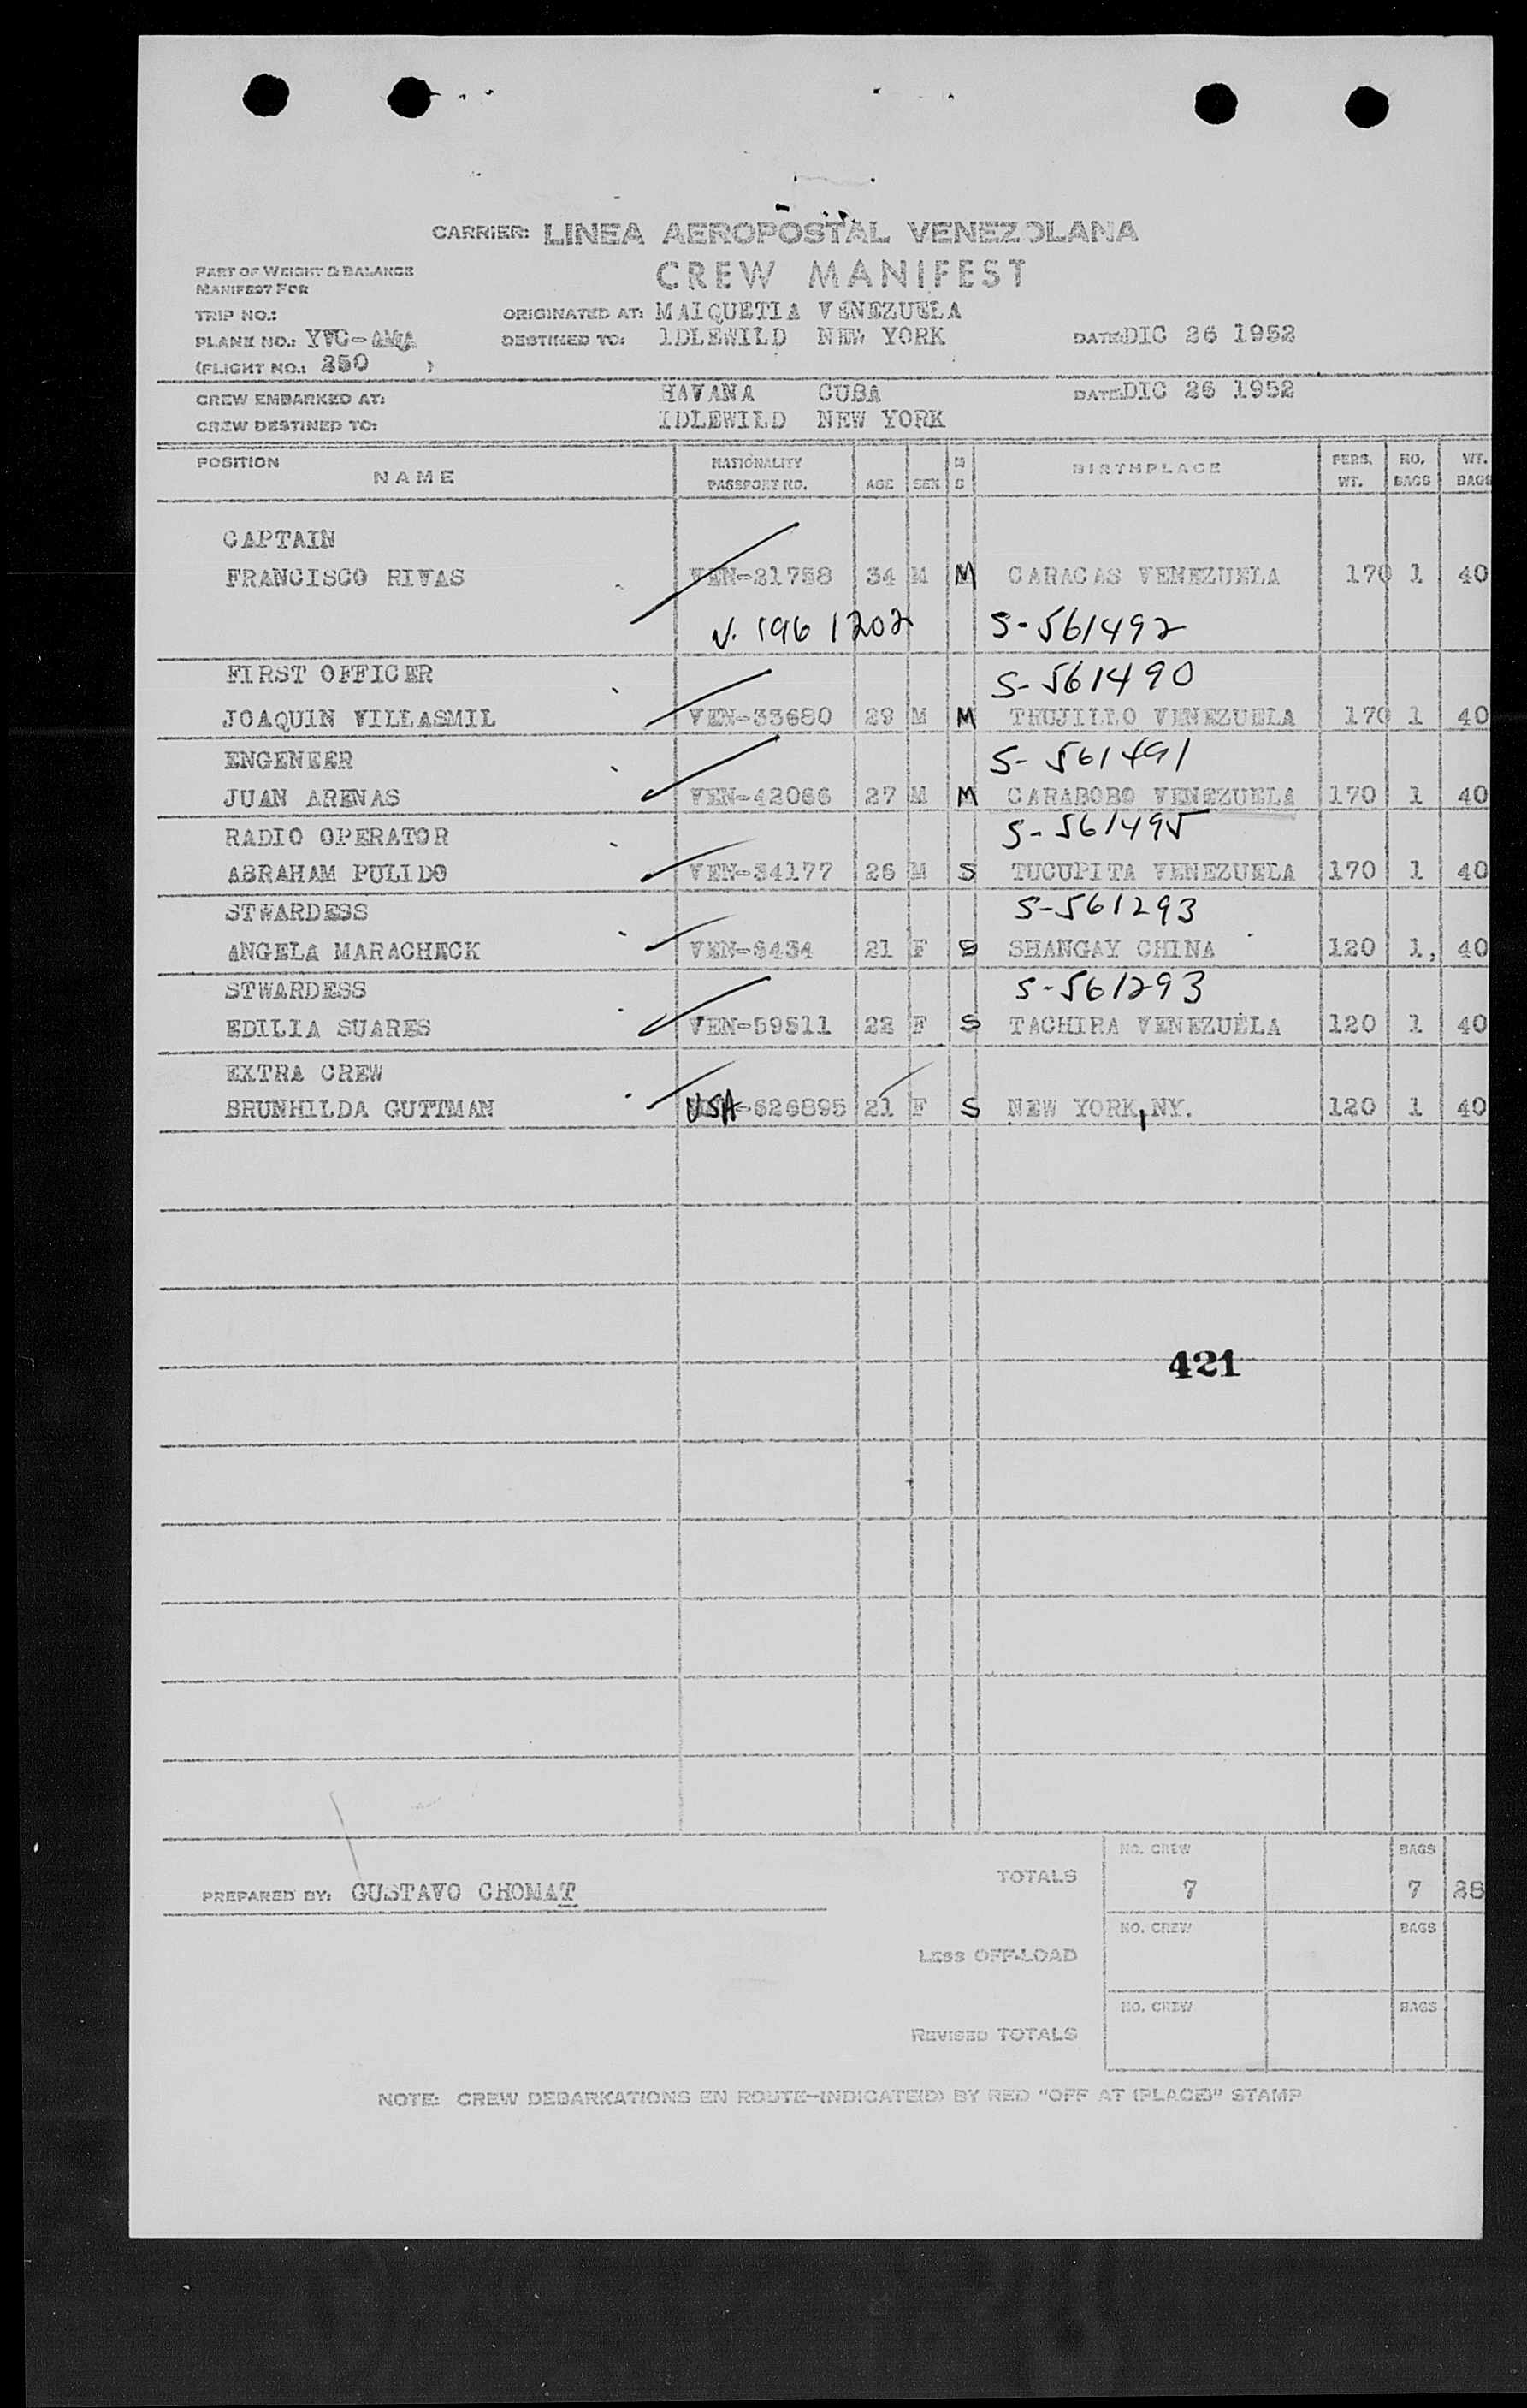 CARRIER: LINEA AEROPOSTAL VENEZOLANA
PART OF WEIGHT & BALANCE
MANIFEST FOR
CREW MANIFEST
TRIP NO.: ORIGINATED AT: MAIQUETIA VENEZUELA
PLANE NO.: YVC- DESTINED TO: IDLEWILD NEW YORK DATE: DIC 26 1952
(FLIGHT NO.: 250 )
CREW EMBARKED AT: HAVANA CUBA DATE: DIC 26 1952
CREW DESTINED TO: IDLEWILD NEW YORK
POSITION NATIONALITY M PERS. NO. WT.
NAME PASSPORT NO. AGE SEX S BIRTHPLACE WT. BAGS BAGS
CAPTAIN
FRANCISCO RIVAS VEN-21758 34 M M CARACAS VENEZUELA 170 1 40
V. 1961202 S-561492
FIRST OFFICER S-561490
JOAQUIN VILLASMIL VEN-33680 29 M M TRUJILLO VENEZUELA 170 1 40
ENGENEER S-561491
JUAN ARENAS VEN-42066 27 M M CARABOBO VENEZUELA 170 1 40
RADIO OPERATOR S-561495
ABRAHAM PULIDO VEN-34177 26 M S TUCUPITA VENEZUELA 170 1 40
STWARDESS S-561293
ANGELA MARACHECK VEN-6434 21 F S SHANGAY CHINA 120 1, 40
STWARDESS S-561293
EDILIA SUARES VEN-59511 22 F S TACHIRA VENEZUELA 120 1 40
EXTRA CREW
BRUNHILDA GUTTMAN USA-626895 21 F S NEW YORK, NY. 120 1 40
421
NO. CREW BAGS
TOTALS 7 7 28
PREPARED BY: GUSTAVO CHOMAT
NO. CREW BAGS
LESS OFF-LOAD
NO. CREW BAGS
REVISED TOTALS
NOTE: CREW DEBARKATIONS EN ROUTE—INDICATE(D) BY RED "OFF AT (PLACE)" STAMP